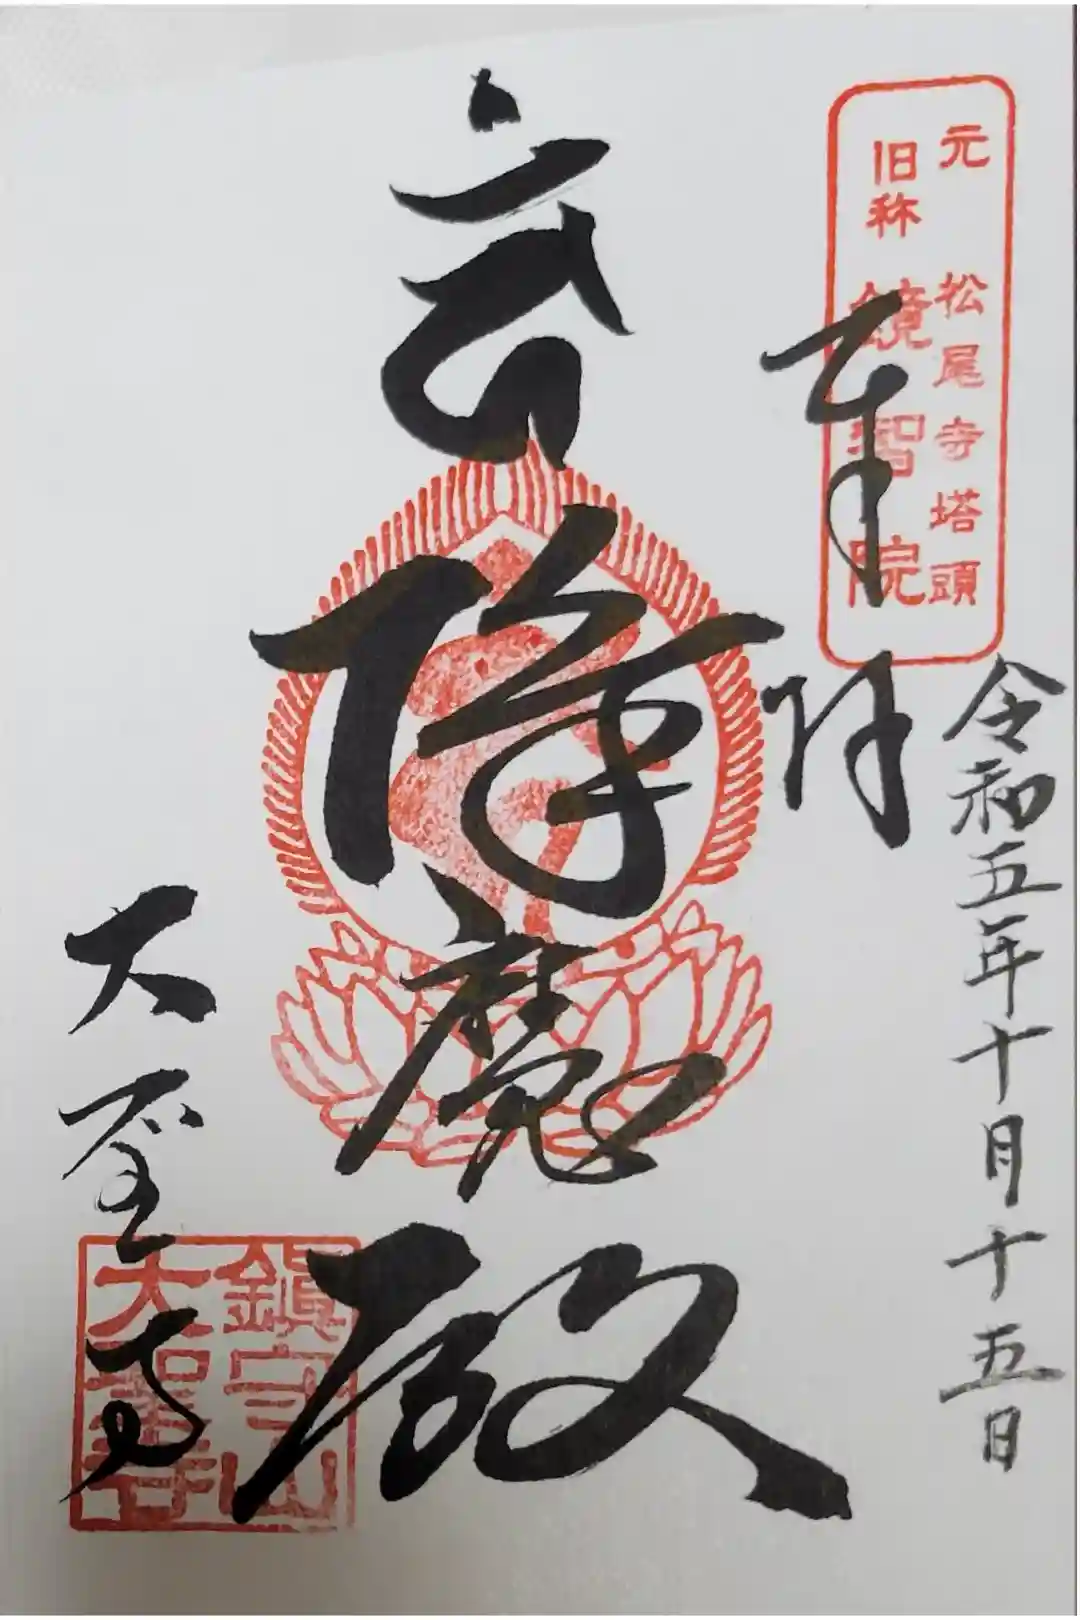 元 松尾寺塔頭
旧称 鏡智院
奉拝
令和五年十月十五日
降魔殿
大聖寺
鎮守山
大聖寺